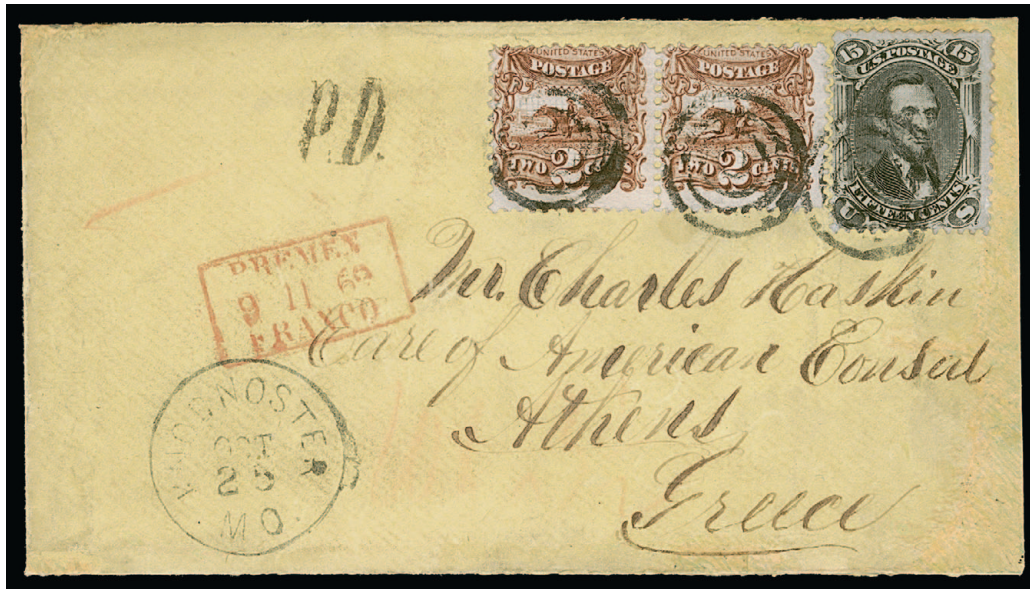 UNITED STATES
POSTAGE
TWO 2 CE
UNITED STATES
POSTAGE
TWO 2 CE
15 15
U.S. POSTAGE
FIFTEEN CENTS
U S
P.D.
BREMEN
9 11 69
FRANCO
Mr. Charles Haskin
Care of American Consul
Athens
Greece
KNOBNOSTER
OCT
25
MO.